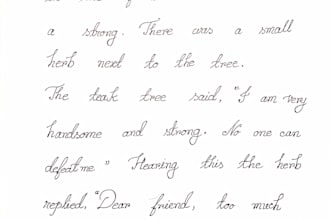 a strong. There was a small
herb next to the tree.
The teak tree said, "I am very
handsome and strong. No one can
defeat me " Hearing this the herb
replied, "Dear friend, too much